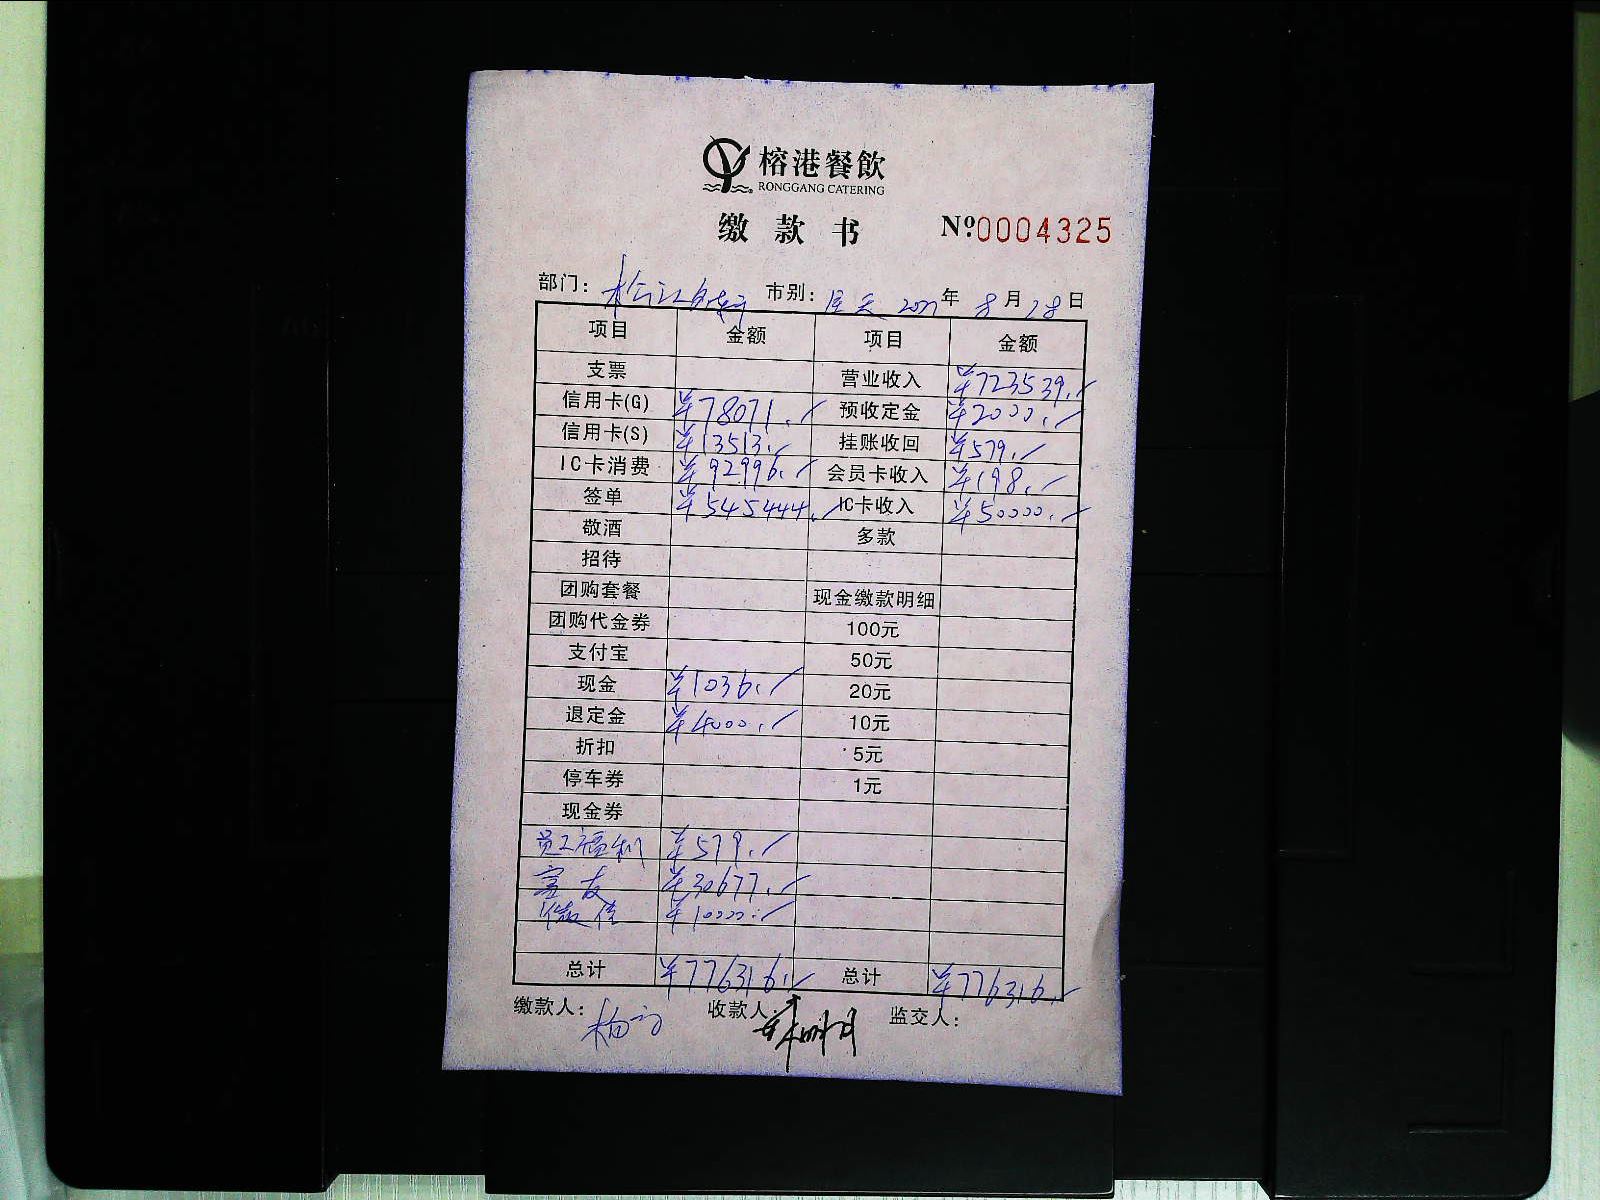 榕港餐飲
RONGGANG CATERING
缴款书 №0004325
部门: 市别: 年 8月18日
项目 金额 项目 金额
支票 营业收入 ¥723539.
信用卡(G) ¥78071. 预收定金 ¥2000.
信用卡(S) ¥13513. 挂账收回 ¥579.
IC卡消费 ¥92996. 会员卡收入 ¥198.
签单 ¥545444. IC卡收入 ¥50000.
敬酒 多款
招待
团购套餐 现金缴款明细
团购代金券 100元
支付宝 50元
现金 ¥1036. 20元
退定金 ¥4000. 10元
折扣 5元
停车券 1元
现金券
员工福利 ¥579.
¥30677.
微信 ¥10000.
总计 ¥776316. 总计 ¥776316.
缴款人: 收款人: 监交人: